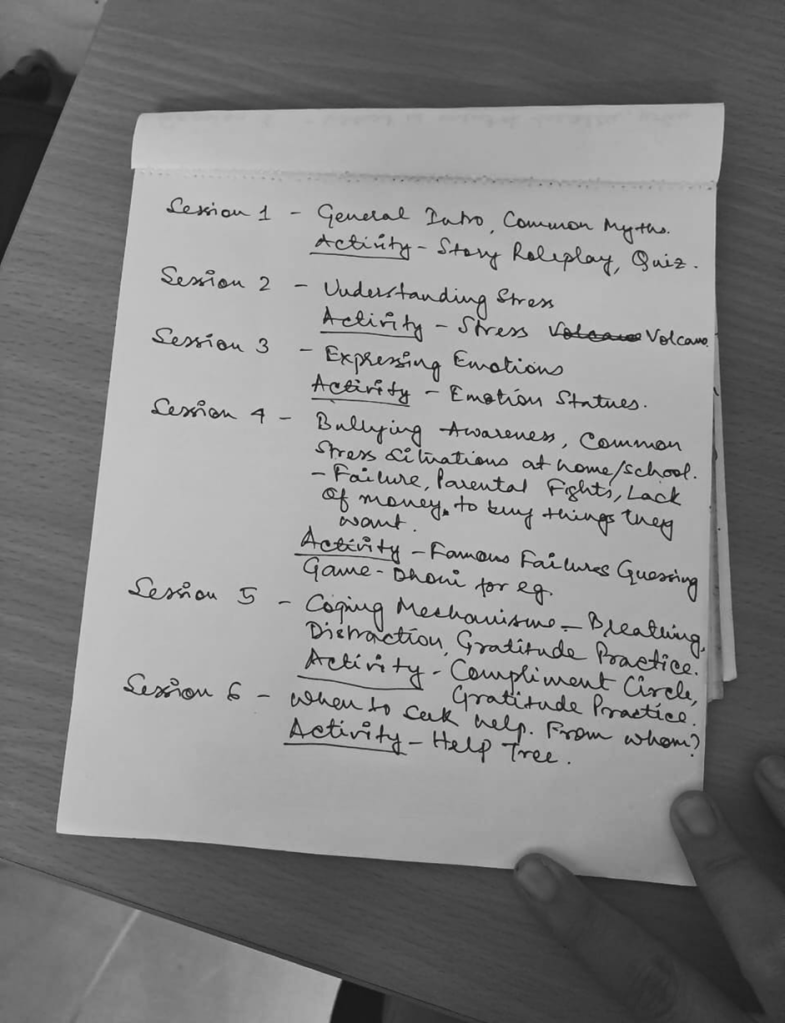 Session 1 - General Intro, Common Myths.
Activity - Story Roleplay, Quiz.
Session 2 - Understanding Stress
Activity - Stress Volcano Volcano
Session 3 - Expressing Emotions
Activity - Emotion Statues.
Session 4 - Bullying Awareness, Common
Stress situations at home/school.
- Failure, Parental Fights, Lack
of money, to buy things they
want.
Activity - Famous Failures Guessing
Game - Dhoni for eg.
Session 5 - Coping Mechanisms - Breathing,
Distraction, Gratitude Practice.
Activity - Compliment Circle,
Gratitude Practice.
Session 6 - When to seek help. From whom?
Activity - Help Tree.